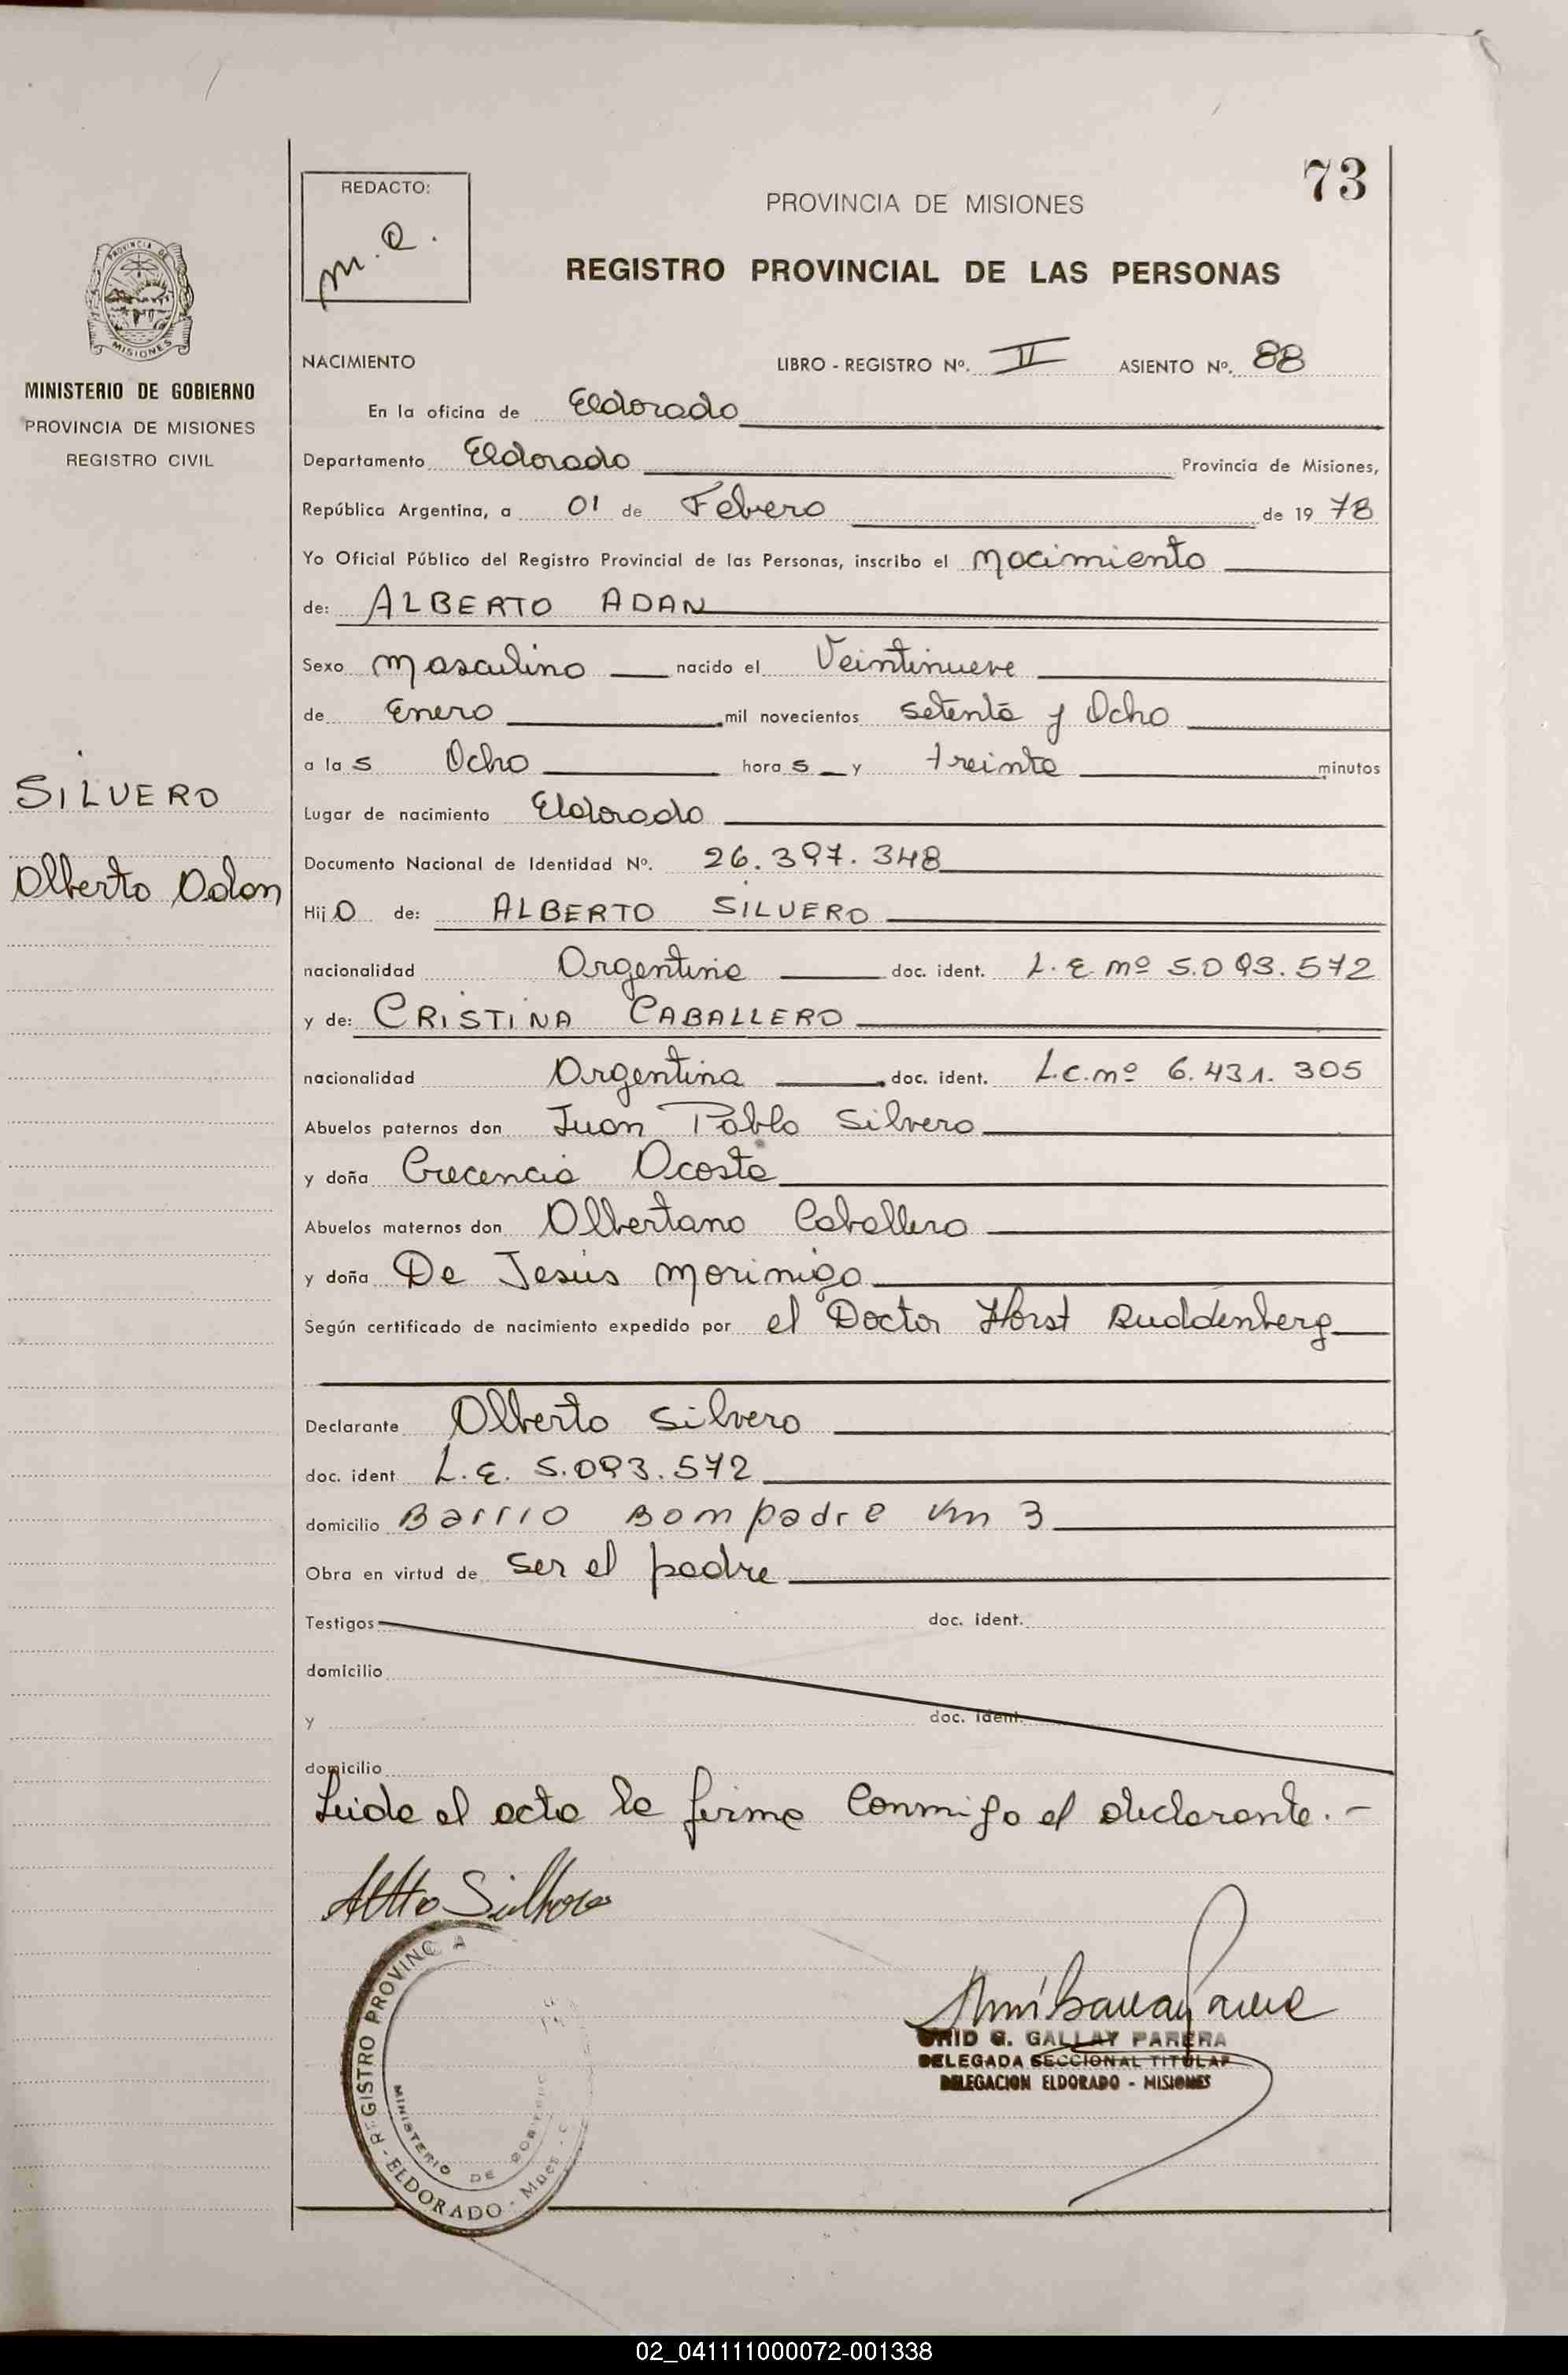 73
REDACTO:
m.a.
PROVINCIA DE MISIONES
REGISTRO PROVINCIAL DE LAS PERSONAS
PROVINCIA DE
MISIONES
MINISTERIO DE GOBIERNO
PROVINCIA DE MISIONES
REGISTRO CIVIL
SILVERO
Alberto Adan
NACIMIENTO LIBRO - REGISTRO Nº. II ASIENTO Nº. 88
En la oficina de Eldorado
Departamento Eldorado Provincia de Misiones,
República Argentina, a 01 de Febero de 19 78
Yo Oficial Público del Registro Provincial de las Personas, inscribo el nacimiento
de: ALBERTO ADAN
Sexo masculino nacido el Veintinueve
de Enero mil novecientos setenta y Ocho
a la s Ocho hora s y treinta minutos
Lugar de nacimiento Eldorado
Documento Nacional de Identidad Nº. 26.397.348
Hij O de: ALBERTO SILVERO
nacionalidad Argentina doc. ident. L.E nº 5.093.572
y de: CRISTINA CABALLERO
nacionalidad Argentina doc. ident. L.C.nº 6.431.305
Abuelos paternos don Juan Pablo Silvero
y doña Crecencia Acosta
Abuelos maternos don Albertano Caballero
y doña De Jesús morinigo
Según certificado de nacimiento expedido por el Doctor Horst Ruddenberg
Declarante Alberto Silvero
doc. ident. L.E. 5.093.572
domicilio Barrio Bompadre Km 3
Obra en virtud de ser el padre
Testigos doc. ident.
domicilio
y doc. ident.
domicilio
Leida el acta la firma conmigo el declarante.-
REGISTRO PROVINC A
MINISTERIO DE
- ELDORADO - Mnes -
G. GALLAY PARERA
DELEGADA SECCIONAL TITULAR
DELEGACION ELDORADO - MISIONES
02_041111000072-001338